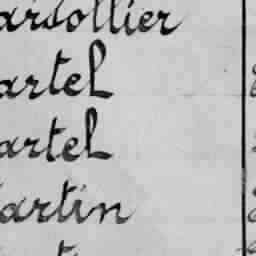 arsollier
artel
artel
artin